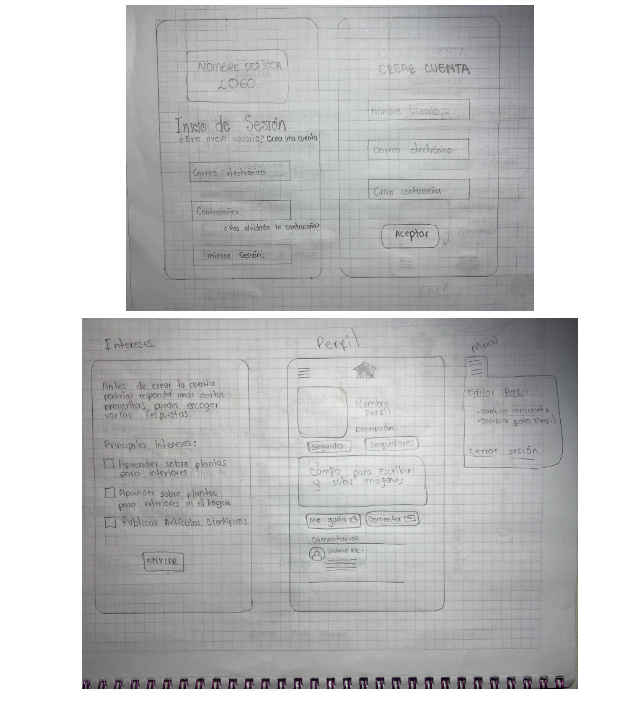 NOMBRE
LOGO
Inicio de Sesión
¿Eres nuevo usuario? Crea una cuenta
Correo electrónico
Contraseña
¿Has olvidado la contraseña?
Iniciar Sesión.
CREAR CUENTA
Nombre Usuario
Correo electrónico
Crear contraseña
Aceptar
Intereses
Antes de crear tu cuenta
podrías responder unas cortas
preguntas, puedes escoger
varias respuestas.
Principales intereses:
Aprender sobre plantas
para interiores
Aprender sobre plantas
para interiores en el hogar
Publicar Artículos Científicos
ENVIAR
Perfil
Nombre
Perfil
Descripción
Seguido
Seguidores
Campo para Escribir
y subir imágenes
Me gusta
Comentar
Comentarios
Menú
Editar Perfil
-cambiar contraseña
-Cambiar foto Perfil
Cerrar sesión